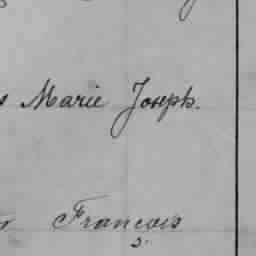 Marie Joseph.
Francois